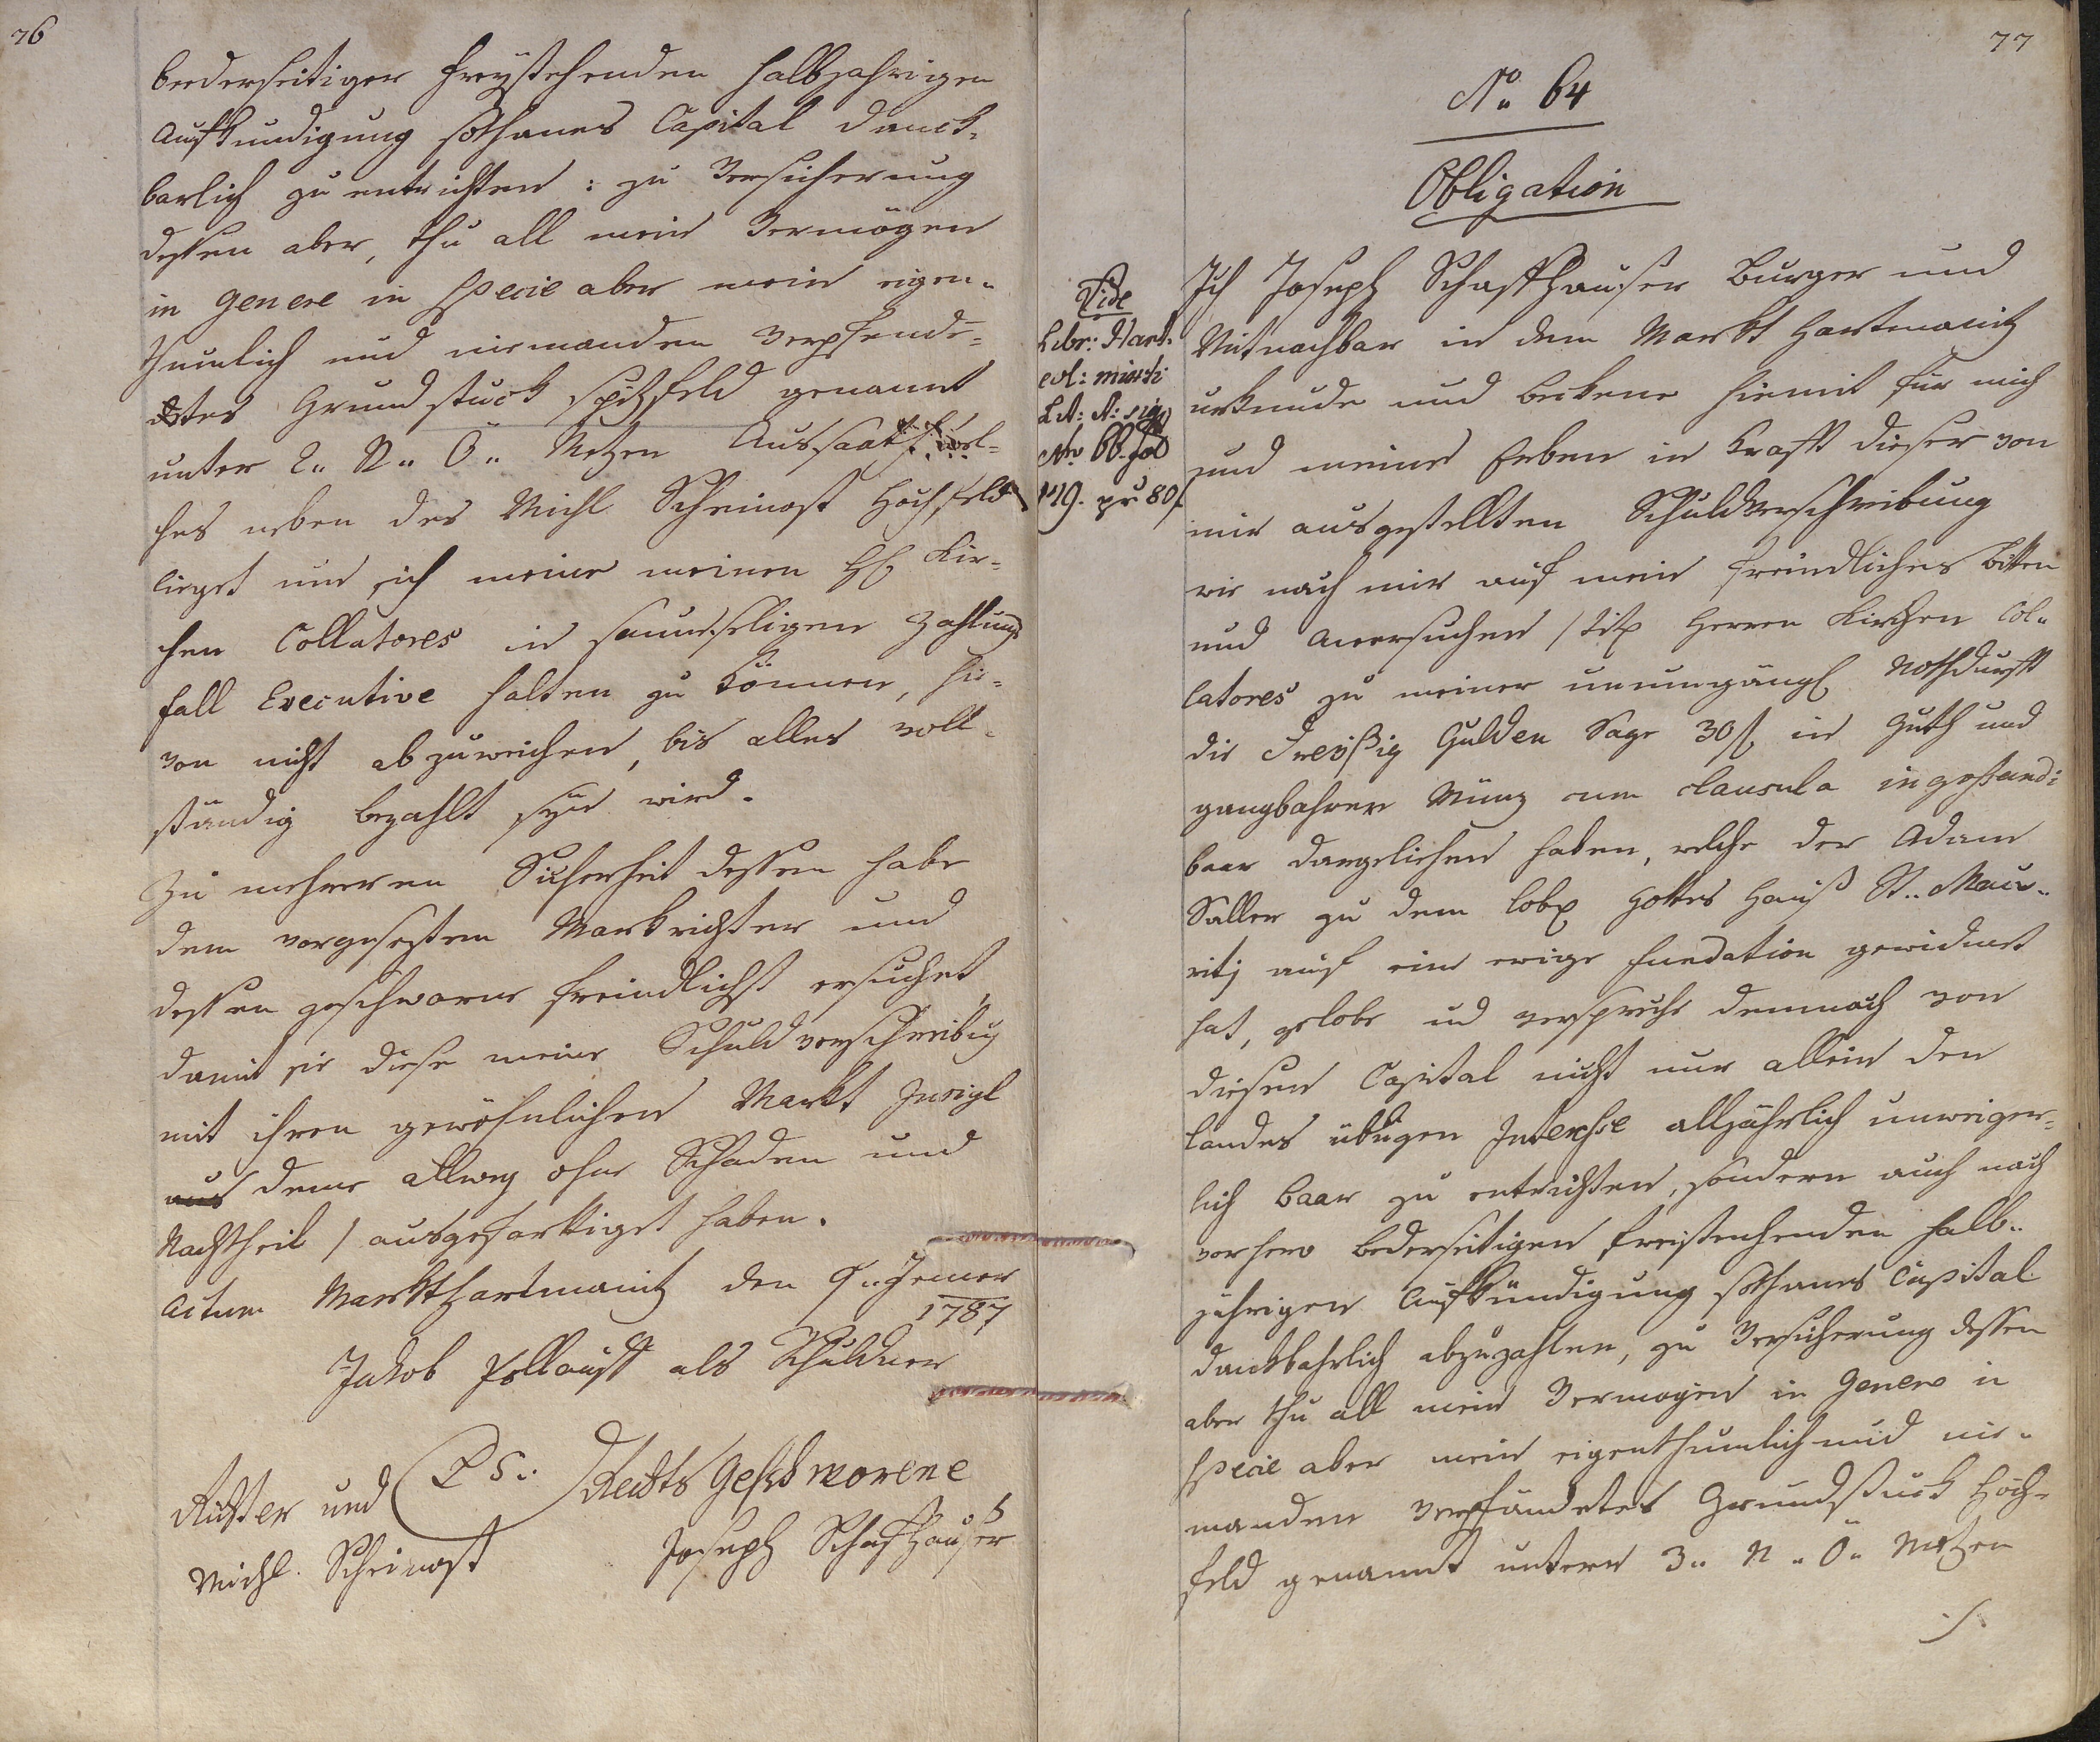 76
bederseitiger freystehenden halbjahrigen
Aufkundigung sothanes Capital danck-
barlich zu entrichten: zu Versicherung
dessen aber, thu all mein Vermögen
in genere in specie aber mein eigen-
thumlich und niemanden verpfende-
tes Grundstuck spitzfeld genannt
unter 2.. N.. Ö.. Metzen Aussaath, wel-
ches neben des Michl Scheinost Hochfeld
lieget und sich meine meinen HH Kir-
chen Collatores in saumseligen Zahlungs
fall Executive halten zu können, hie-
von nicht abzuweichen, bis alles voll-
ständig bezahlt seyn wird.
Zu mehreren Sicherheit dessen habe
dem vorgesezten Markrichter und
dessen geschworne freindlichst ersuchet,
damit sie diese meine Schuldverschreibug
mit ihren gewöhnlichen Markt Insigl
deme allweg ohne Schaden und
Nachtheil / ausgefertiget haben.
Actum Markthartmanitz den 9.. Jenner
1787
Jakob als Schuldner
Richter und LS.. Rechts Geschworene
Michl. Scheinost Joseph Schafhauser
77
No. 64
Obligation
Vide
Libr: Hart-
Lit: A: sig
Nro 66. fol
119. pr 80 f
Ich Joseph Schaffhauser Burger und
Mitnachbar in dem Markt Hartmanitz
urkunde und bekene hiemit für mich
und meine Erben in Kraft dieser von
mir ausgestellten Schuldverschreibung
wie nach mir auf mein freindliches bitten
und Anersuchen / Titl Herren Kirchen Col-
latores zu meiner unumgängl Nothdurft
die Dreißig Gulden Sage 30 f in Guth und
gangbahrer Münz cum clausula ingehend:
baar dargeliehen haben, welche der Adam
Saller zu dem lobl Gottes Hauß St.. Mau-
ritj auf eine ewige fundation gewidmet
hat, gelobe ud verspreche demnach von
diesen Capital nicht nur allein den
landes übligen Interesse alljährlich unweiger-
lich baar zu entrichten, sondern auch nach
vorhero bederseitigen freistenhenden halb-
jährigen Aufkündigung sothanes Capital
danckbahrlich abzuzahlen, zu Versicherung dessen
aber thu all mein Vermogen in Genere in
specie aber mein eigenthumlich und nie-
manden verpfändetes Grundstuck Hoch-
feld genannt untern 3.. N.. Ö.. Metzen
./.